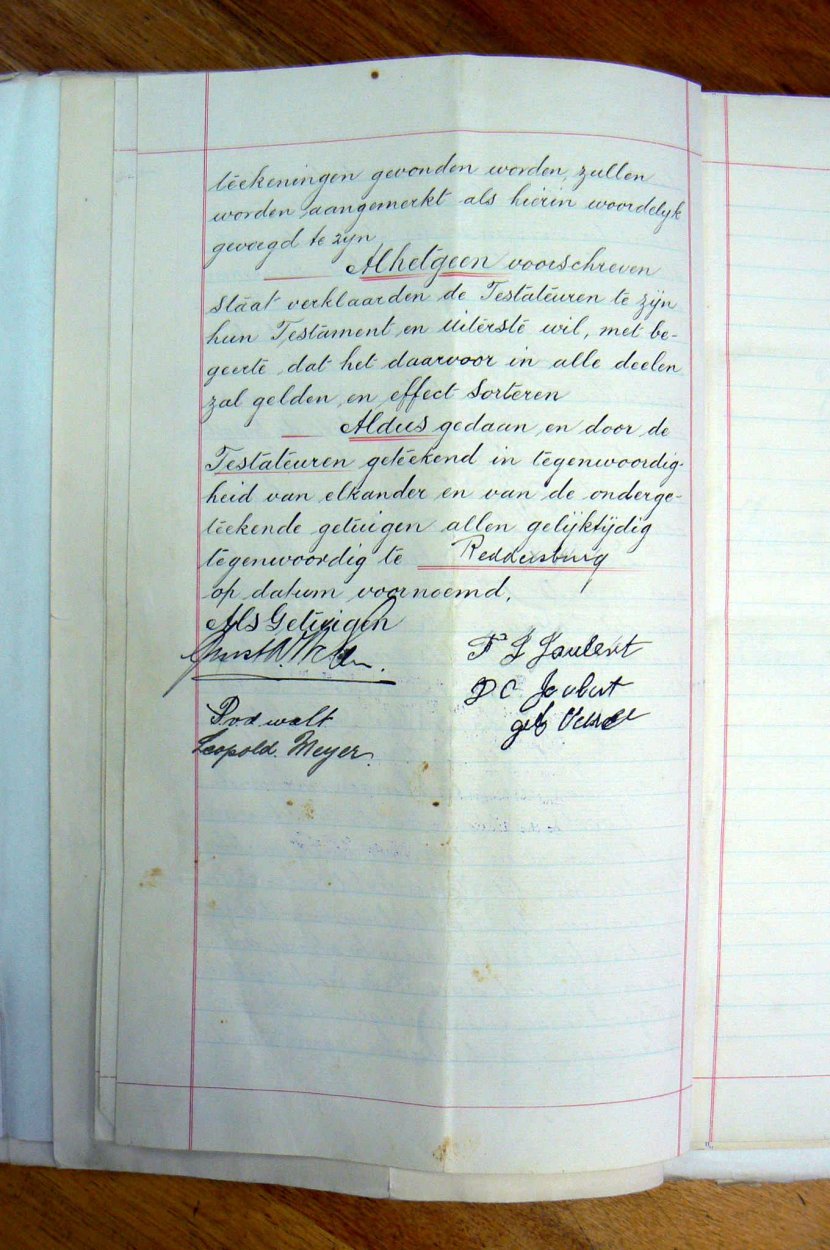 teekeningen gevonden worden, zullen
worden aangemerkt als hierin woordelyk
gevoegd te zyn
Alhetgeen voorschreven
staat verklaarden de Testateuren te zyn
hun Testament en uiterste wil, met be-
geerte dat het daarvoor in alle deelen
zal gelden en effect sorteren
Aldus gedaan en door de
Testateuren geteekend in tegenwoordig-
heid van elkander en van de onderge-
teekende getuigen allen gelyktydig
tegenwoordig te Reddersburg
op datum voornoemd.
Als Getuigen
F J Joubert
D C Joubert
geb
Leopold. Meyer.